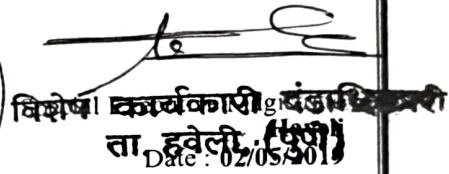 विशेष कार्यकारी दंडाधिकारी
ता. हवेली, (पुणे)
Date : 02/05/2019